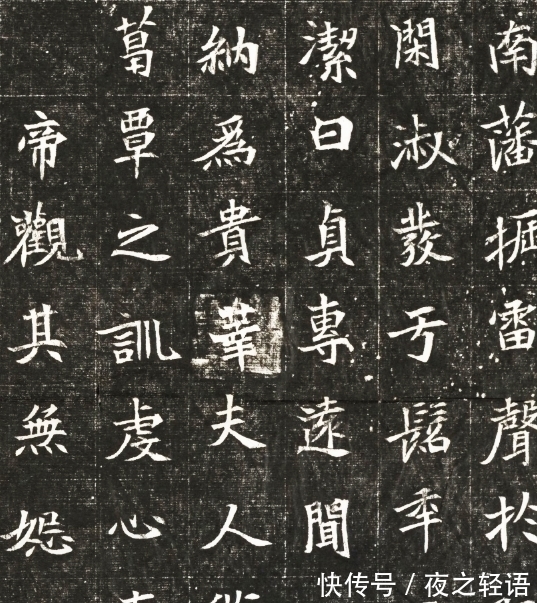 南藩掘雷聲於
閑淑發于髫年
潔曰貞專遠聞
納爲貴華夫人
葛覃之訓虔心
帝觀其無妒
快传号 / 夜之轻语